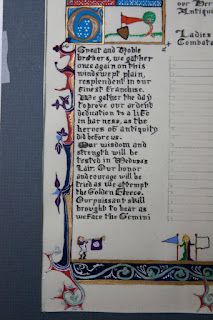 our Her
Antiqu
Ladies
Combata
Great and Noble
brokers, we gather
once again on this
windswept plain,
resplendent in our
finest franchise.
We gather the day
to prove our ardent
dedication to a life
in harness, as the
heroes of antiquity
did before us.
Our wisdom and
strength will be
tested in Medusas
Lair. Our honor
and courage will be
tried as we attempt
the Golden Fleece.
Our puissant skill
brought to bear as
we face the Gemini